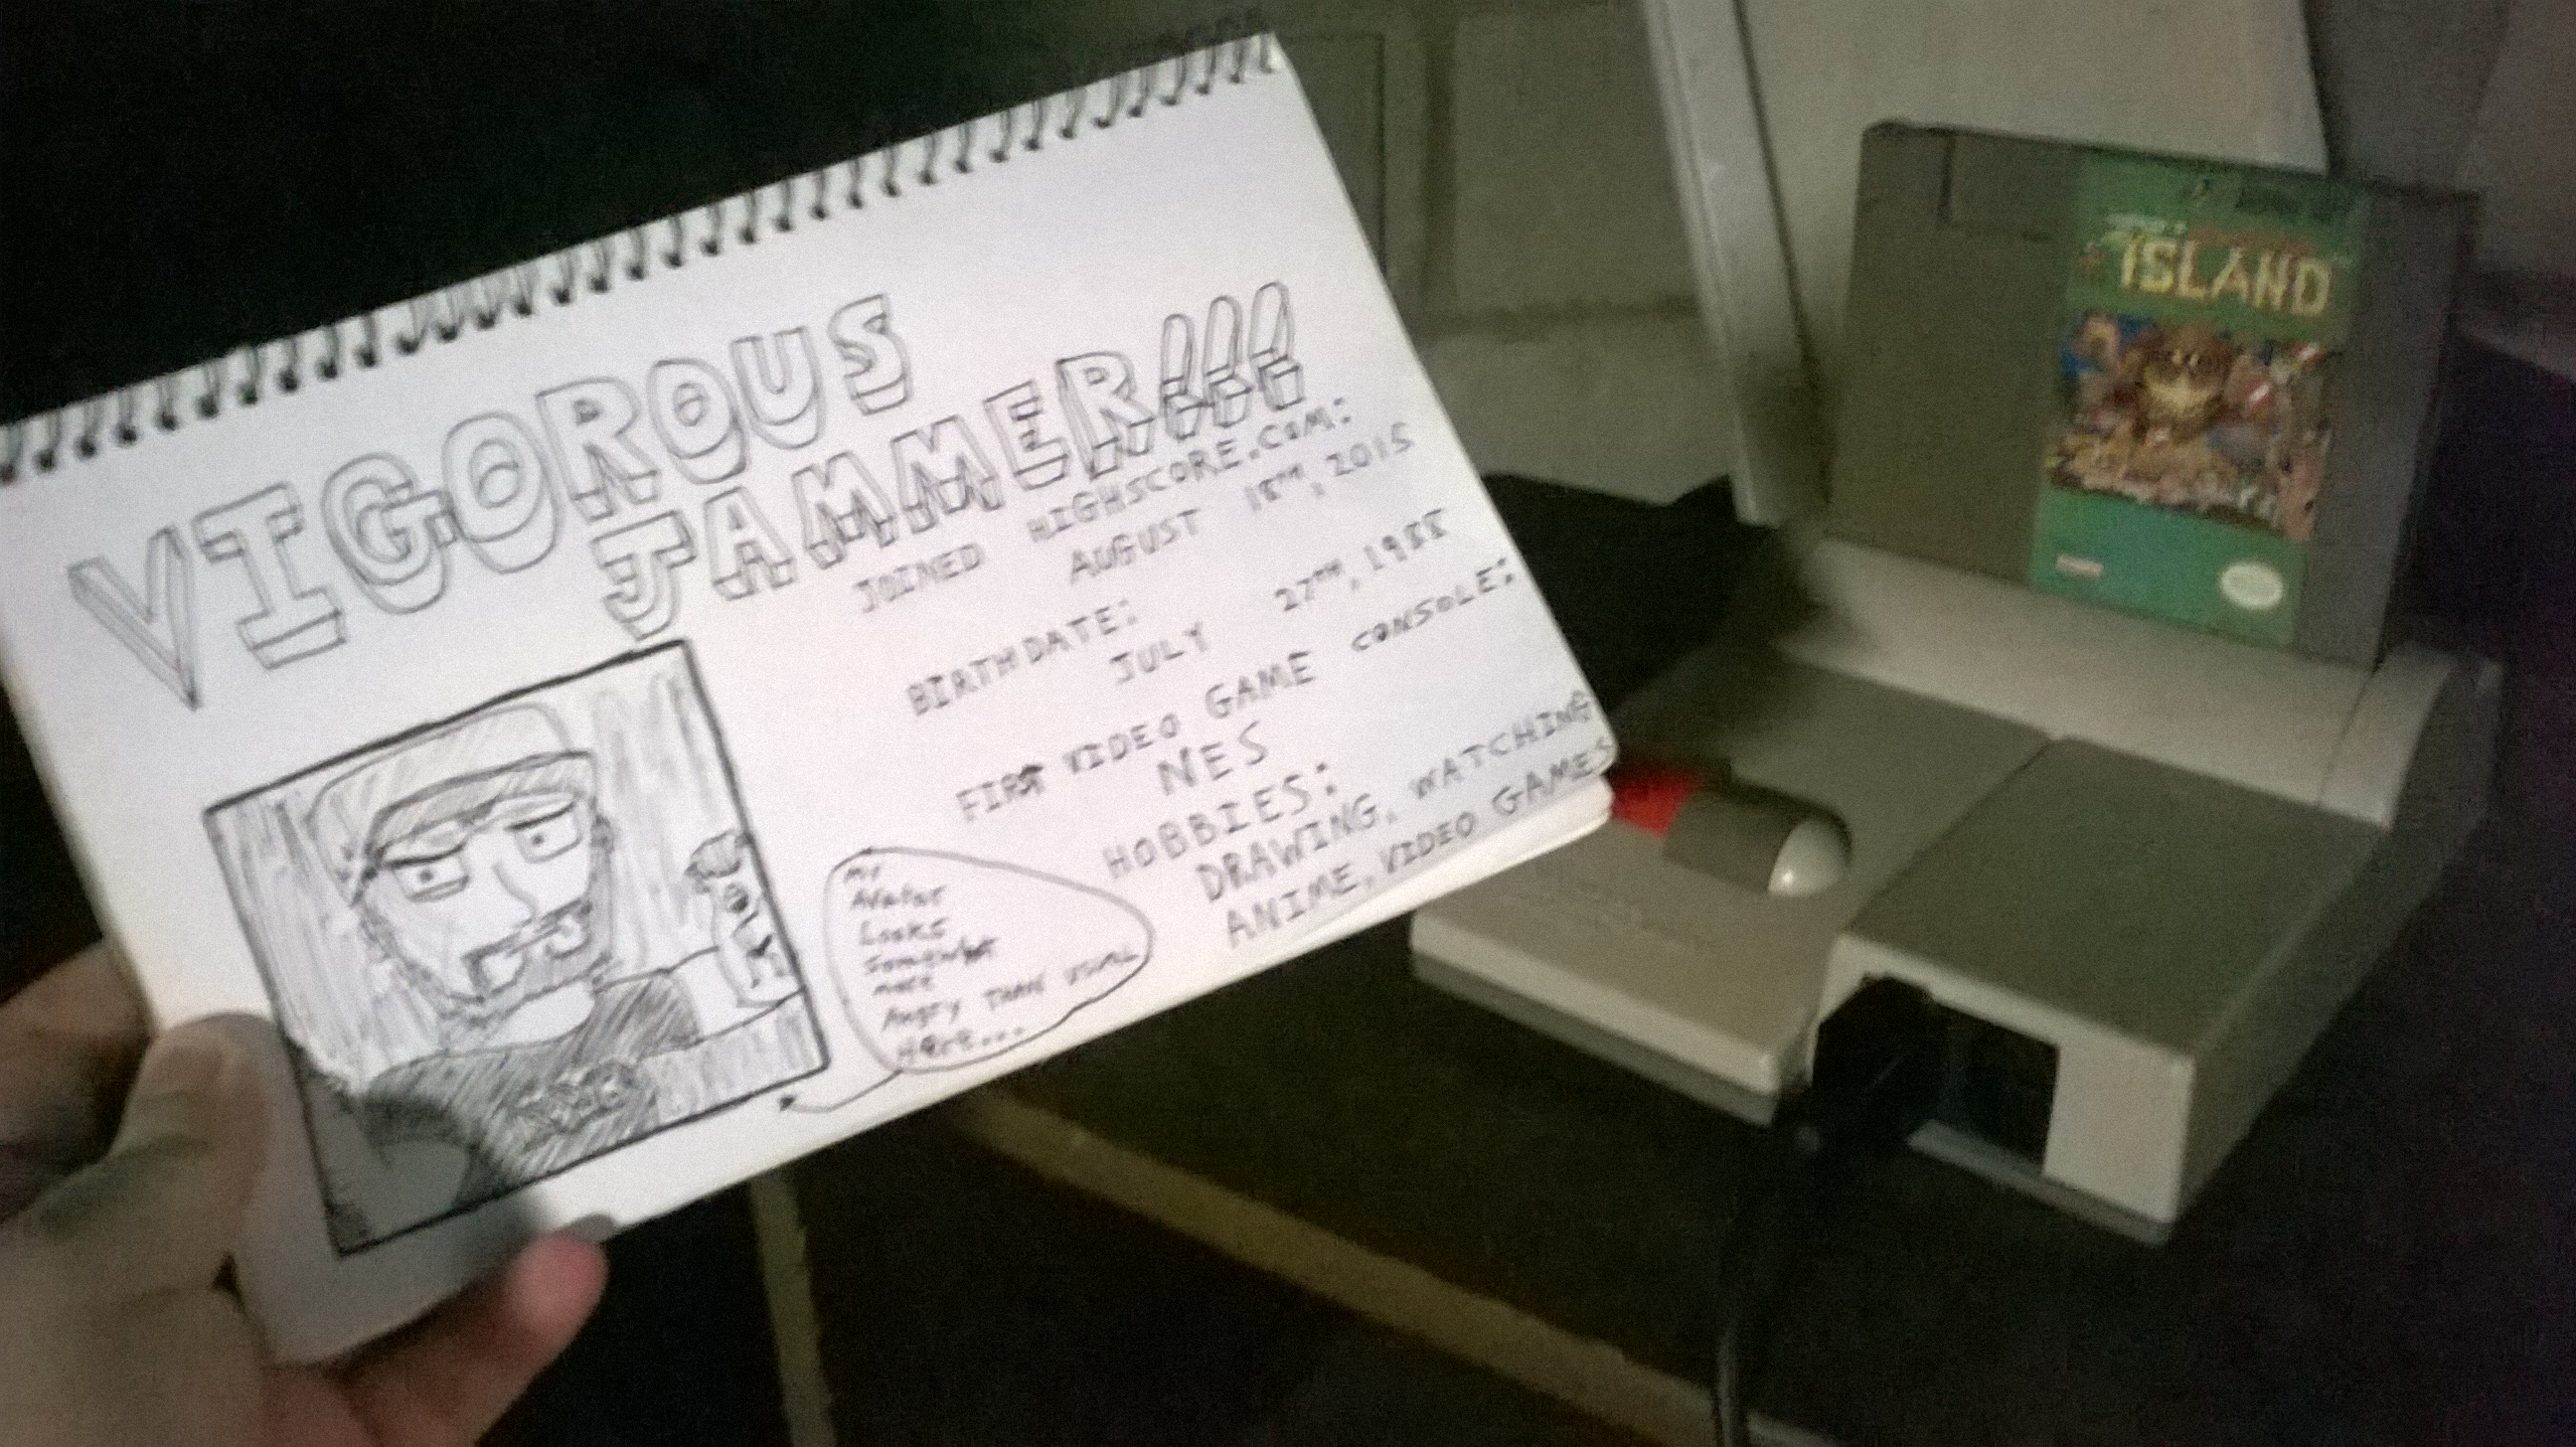 VIGOROUS
JAMMER!!!
JOINED HIGHSCORE.COM:
AUGUST 18TH, 2015
BIRTHDATE:
JULY 27TH, 1988
FIRST VIDEO GAME CONSOLE:
NES
HOBBIES:
DRAWING, WATCHING
ANIME, VIDEO GAMES
My
Avatar
Looks
Somewhat
more
Angry THAN USUAL
Here...
ISLAND